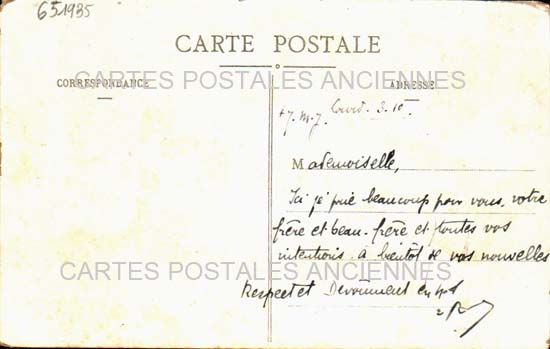 651935
CARTE POSTALE
CARTES POSTALES ANCIENNES
CORRESPONDANCE
ADRESSE
+J.M.J. Lourd. 3.10
Mademoiselle,
Ici je prie beaucoup pour vous, votre
frère et beau-frère et toutes vos
intentions. à bientôt de vos nouvelles
CARTES POSTALES ANCIENNES
Respect et Dévouement en